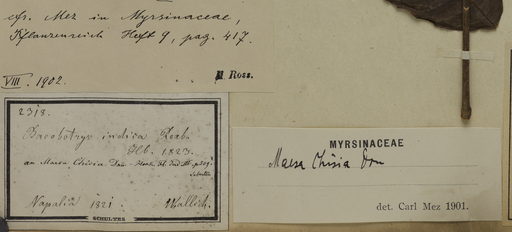 cfr. Mez in Myrsinaceae,
Pflanzenreich Heft 9, pag. 417.
VIII. 1902.
H. Ross.
2318.
Baeobotrys indica Roxb.
Hb. 1823.
an Maesa Chisia Don
Napalia 1821 Wallich.
SCHULTES
MYRSINACEAE
Maesa Chisia Don
det. Carl Mez 1901.